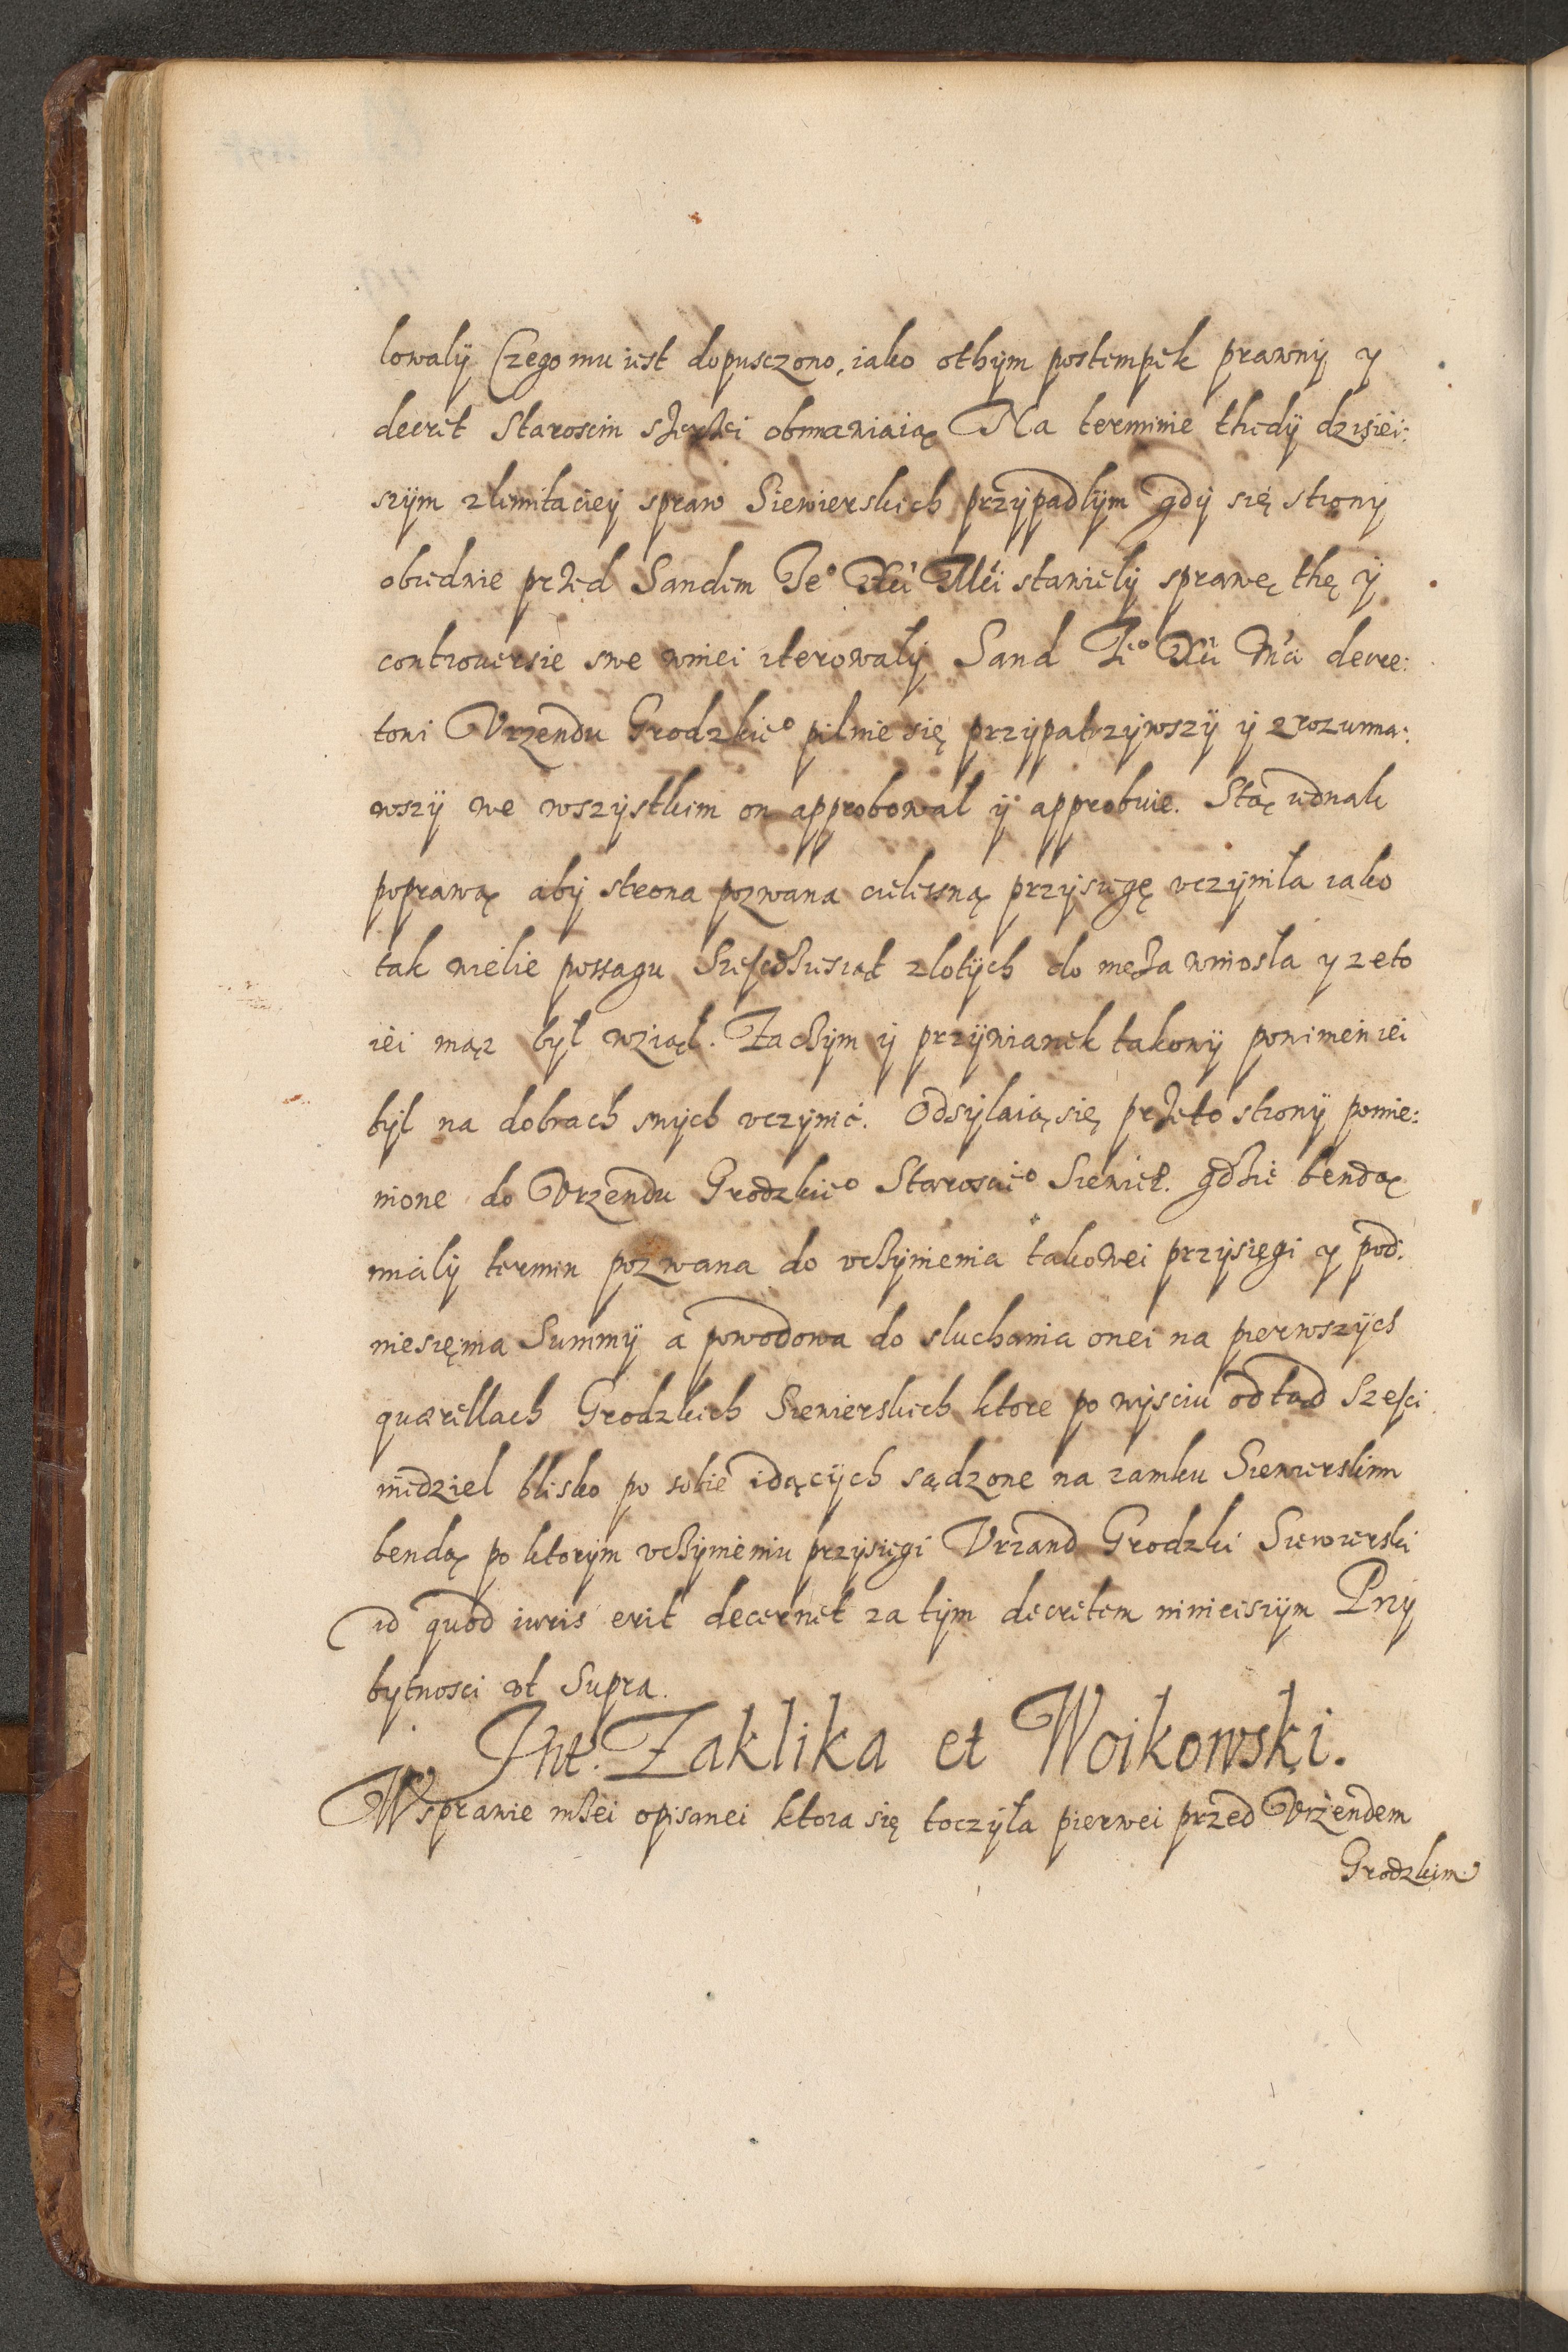 lowaly Czego mu iest dopusczono, iako othym postempek prawny y
decret Staroscin szerzei obmawiaią Na terminie thedy dzisiei:
szym zlimitaciey spraw Siewierskich przypadlym gdy się strony
obiedwie przed Sandem Ie° Xći Mći stawiely sprawę thę y
controuersie swe wniei iterowaly Sand Ie° Xći Mći decre:
towi Vrzendu Grodzkie° pilnie się przypatrzywszy y zrozuma:
wszy we wszystkim on approbowal y approbuie. Stą iednak
poprawą aby strona pozwana cielesną przysięgę vczynila iako
tak wiele possagu Sześcdziesiat zlotych do męża wniosla y ze to
iei mąz był wziął. Zaczym y przywianek takowy powinien iei
byl na dobrach swych vczynić. Odsylaią się przeto strony pomie:
nione do Vrzendu Grodzkie° Staroscie° Siewier. gdzie bendą
mialy termin pozwana do vczynienia takowei przysięgi y pod:
niesięnia Summy a powodowa do sluchania onei na pierwszych
quærellach Grodzkich Siewierskich ktore po wysciu od tad Sześci
niedziel blisko po sobie idących sądzone na zamku Siewierskim
bendą po ktorym vczynieniu przysięgi Vrzand Grodzki Siewierski
id quod iuris erit decernet za tym decretem ninieiszym Przy
bytnosci vt Supra.
Int. Zaklika et Woikowski.
W sprawie niżei opisanei ktora się toczyła pierwei przed Vrzendem
Grodzkim